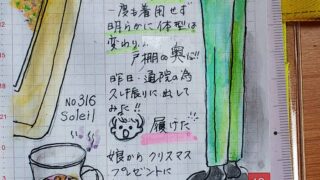 一度も着用せず
明らかに体型は
変わり...
戸棚の奥に!!
昨日、通院の為
久し振りに出して
みた!!
履けた
娘から クリスマス
プレゼントに
NO316
Soleil